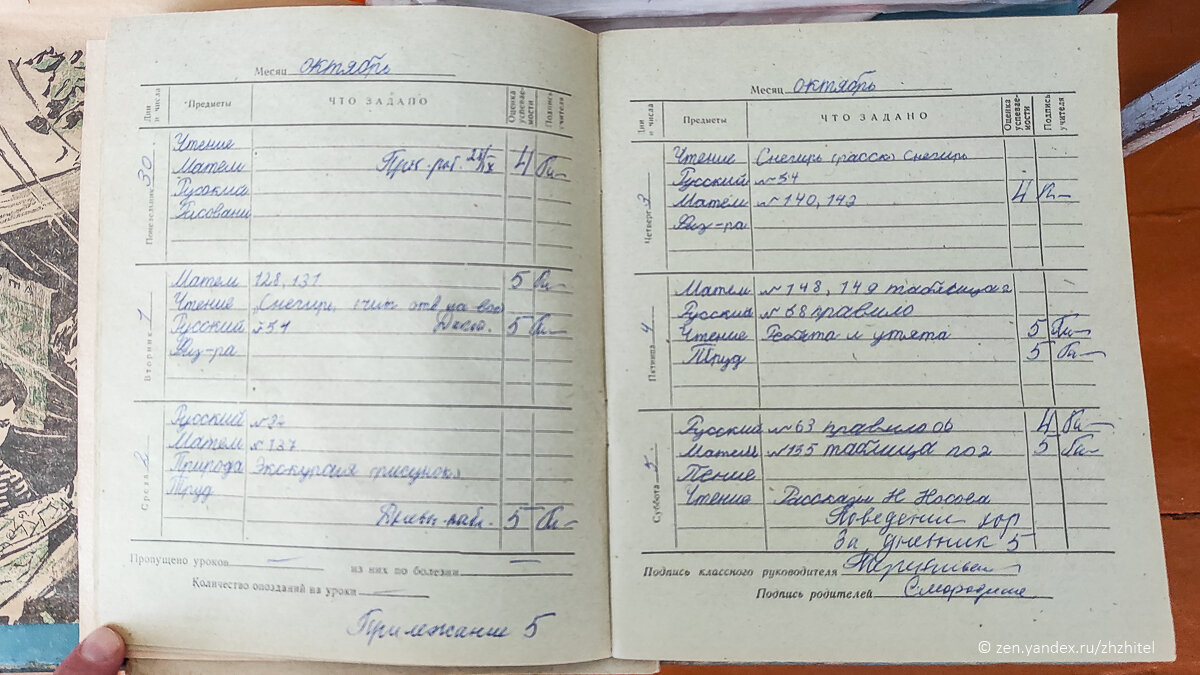 Месяц октябрь
Дни и числа Предметы ЧТО ЗАДАНО Оценка успевае-мости Подпись учителя
Понедельник 30
Чтение
Матем 4
Рисовани
Вторник 1
Матем 128, 131 5
Чтение Снегирь,
Русский 5
Физ-ра
Среда 2
Русский
Матем № 137
Природа рисунок
Труд
5
Пропущено уроков — из них по болезни —
Количество опозданий на уроки —
Прилежание 5
Месяц октябрь
Дни и числа Предметы ЧТО ЗАДАНО Оценка успевае-мости Подпись учителя
Четверг 3
Чтение Снегирь расск Снегирь
Русский № 54
Матем № 140, 142 4
Физ-ра
Пятница 4
Матем № 148, 149 таблица 2
Русский № 58 правило
Чтение Ребята и утята 5
Труд 5
Суббота 5
Русский № 63 правило 4
Матем № 155 таблица по 2 5
Пение
Чтение Рассказы Н Носова
Поведении хор
За дневник 5
Подпись классного руководителя
Подпись родителей
© zen.yandex.ru/zhzhitel